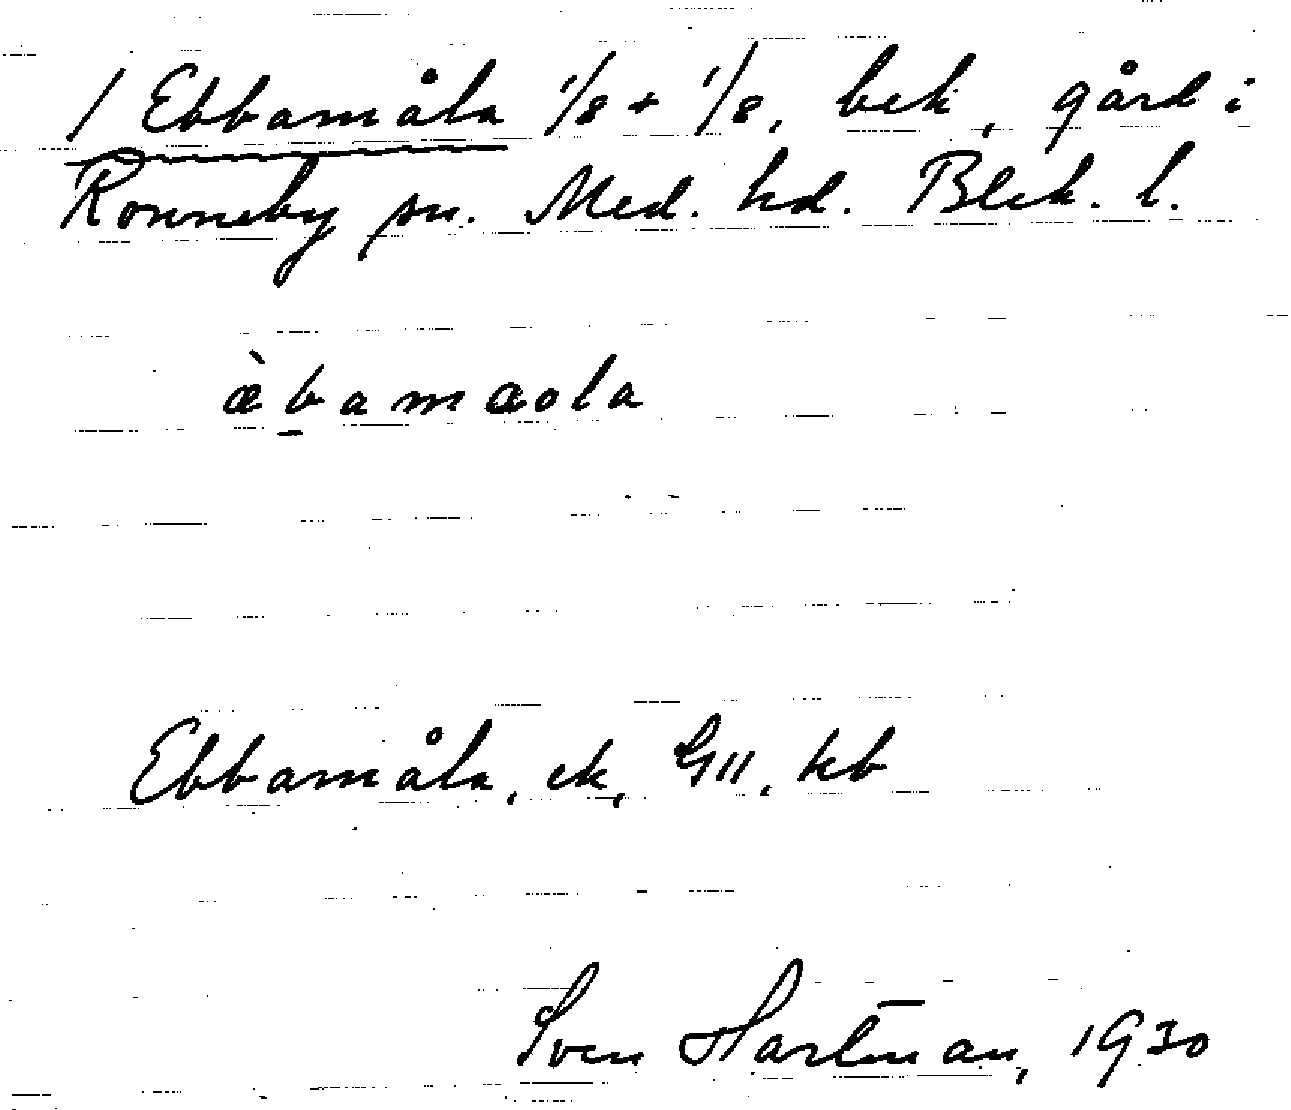 / Ebbamåla 1/8 + 1/8, bek, gård i
Ronneby sn. Med. hd. Blek. l.
æ̀b̲amaola
Ebbamåla, ek, GII, kb
Sven Hartman, 1930